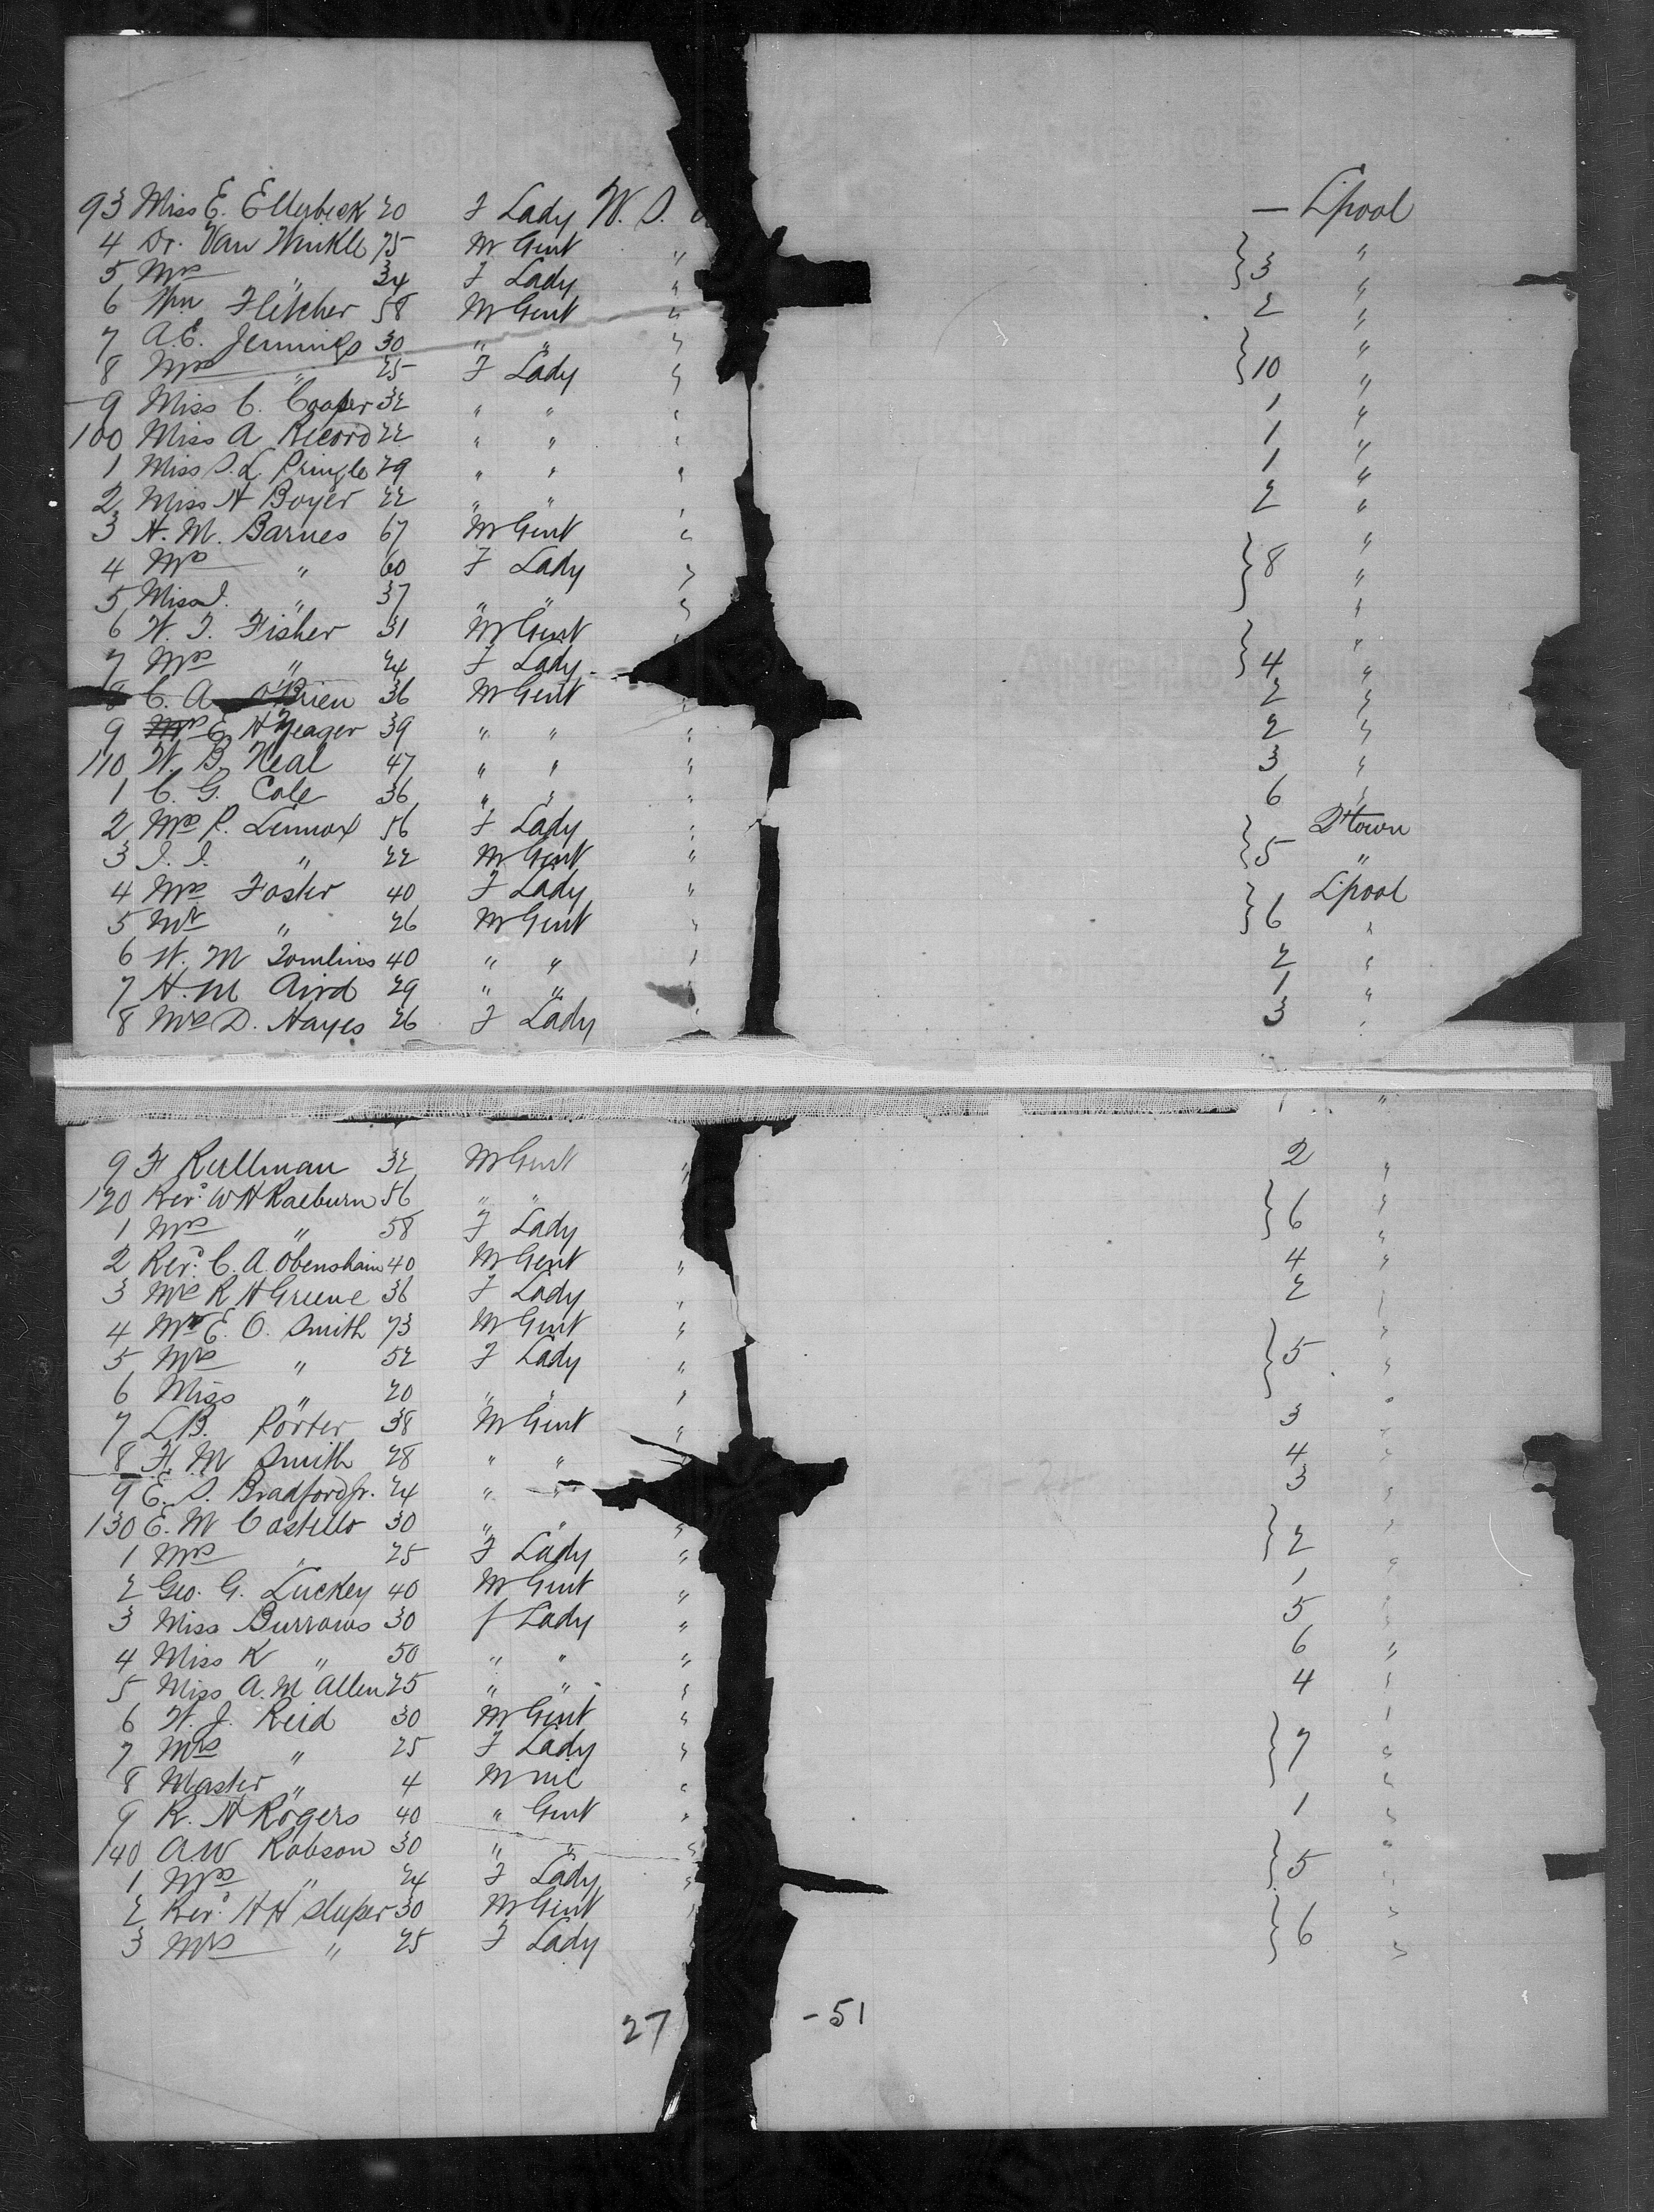 93 Miss E. Ellerbeck 20 F Lady U. S. — L'pool
4 Dr. Van Winkle 75 M Gent " } 3 "
5 Mrs " 34 F Lady " "
6 Wm Fletcher 58 M Gent " 2 "
7 A. E. Jennings 30 " " " } 10 "
8 Mrs " 25 F Lady " "
9 Miss C. Cooper 32 " " " 1 "
100 Miss A Record 22 " " " 1 "
1 Miss S. L. Pringle 29 " " " 1 "
2 Miss H Boyer 22 " " " 2 "
3 H. M. Barnes 67 M Gent " } 8 "
4 Mrs " 60 F Lady " "
5 Miss I. " 37 " " " "
6 W. T. Fisher 31 M Gent " } 4 "
7 Mrs " 24 F Lady "
8 C. A O'Brien 36 M Gent " 2 "
9 E. H Yeager 39 " " " 2 "
110 W. B. Neal 47 " " " 3 "
1 C. G. Cole 36 " " " 6 "
2 Mrs P. Lennox 56 F Lady " } 5 Q'town
3 J. J. " 22 M Gent " "
4 Mrs Foster 40 F Lady " } 6 L'pool
5 Mr " 26 M Gent " "
6 W. M Tomlins 40 " " " 2 "
7 H. M Aird 29 " " 1 "
8 Mrs D. Hayes 26 F Lady " 3 "
1 "
9 F Rullman 32 M Gent " 2 "
120 Revd. W H Raeburn 56 " " } 6 "
1 Mrs " 58 F Lady "
2 Revd. C. A Obenshain 40 M Gent " 4 "
3 Mrs R H Greene 36 F Lady " 2 "
4 Mr E. O. Smith 73 M Gent " } 5 "
5 Mrs " 52 F Lady " "
6 Miss " 20 " " " "
7 L B. Porter 38 M Gent " 3 "
8 F. M Smith 28 " " 4 "
9 E. S. Bradford Jr. 24 " " 3 "
130 E. M Costello 30 " " " } 2 "
1 Mrs " 25 F Lady " "
2 Geo. G. Luckey 40 M Gent " 1 "
3 Miss Burrows 30 f Lady " 5 "
4 Miss K " 50 " " " 6 "
5 Miss A. M Allen 25 " " " 4 "
6 W. J. Reid 30 M Gent " } 7 "
7 Mrs " 25 F Lady " "
8 Master " 4 M nil " "
9 R. H Rogers 40 " Gent " 1 "
140 A. W Robson 30 " " " } 5 "
1 Mrs " 24 F Lady " "
2 Revd. H H Sleeper 30 M Gent " } 6 "
3 Mrs " 25 F Lady "
27 -51